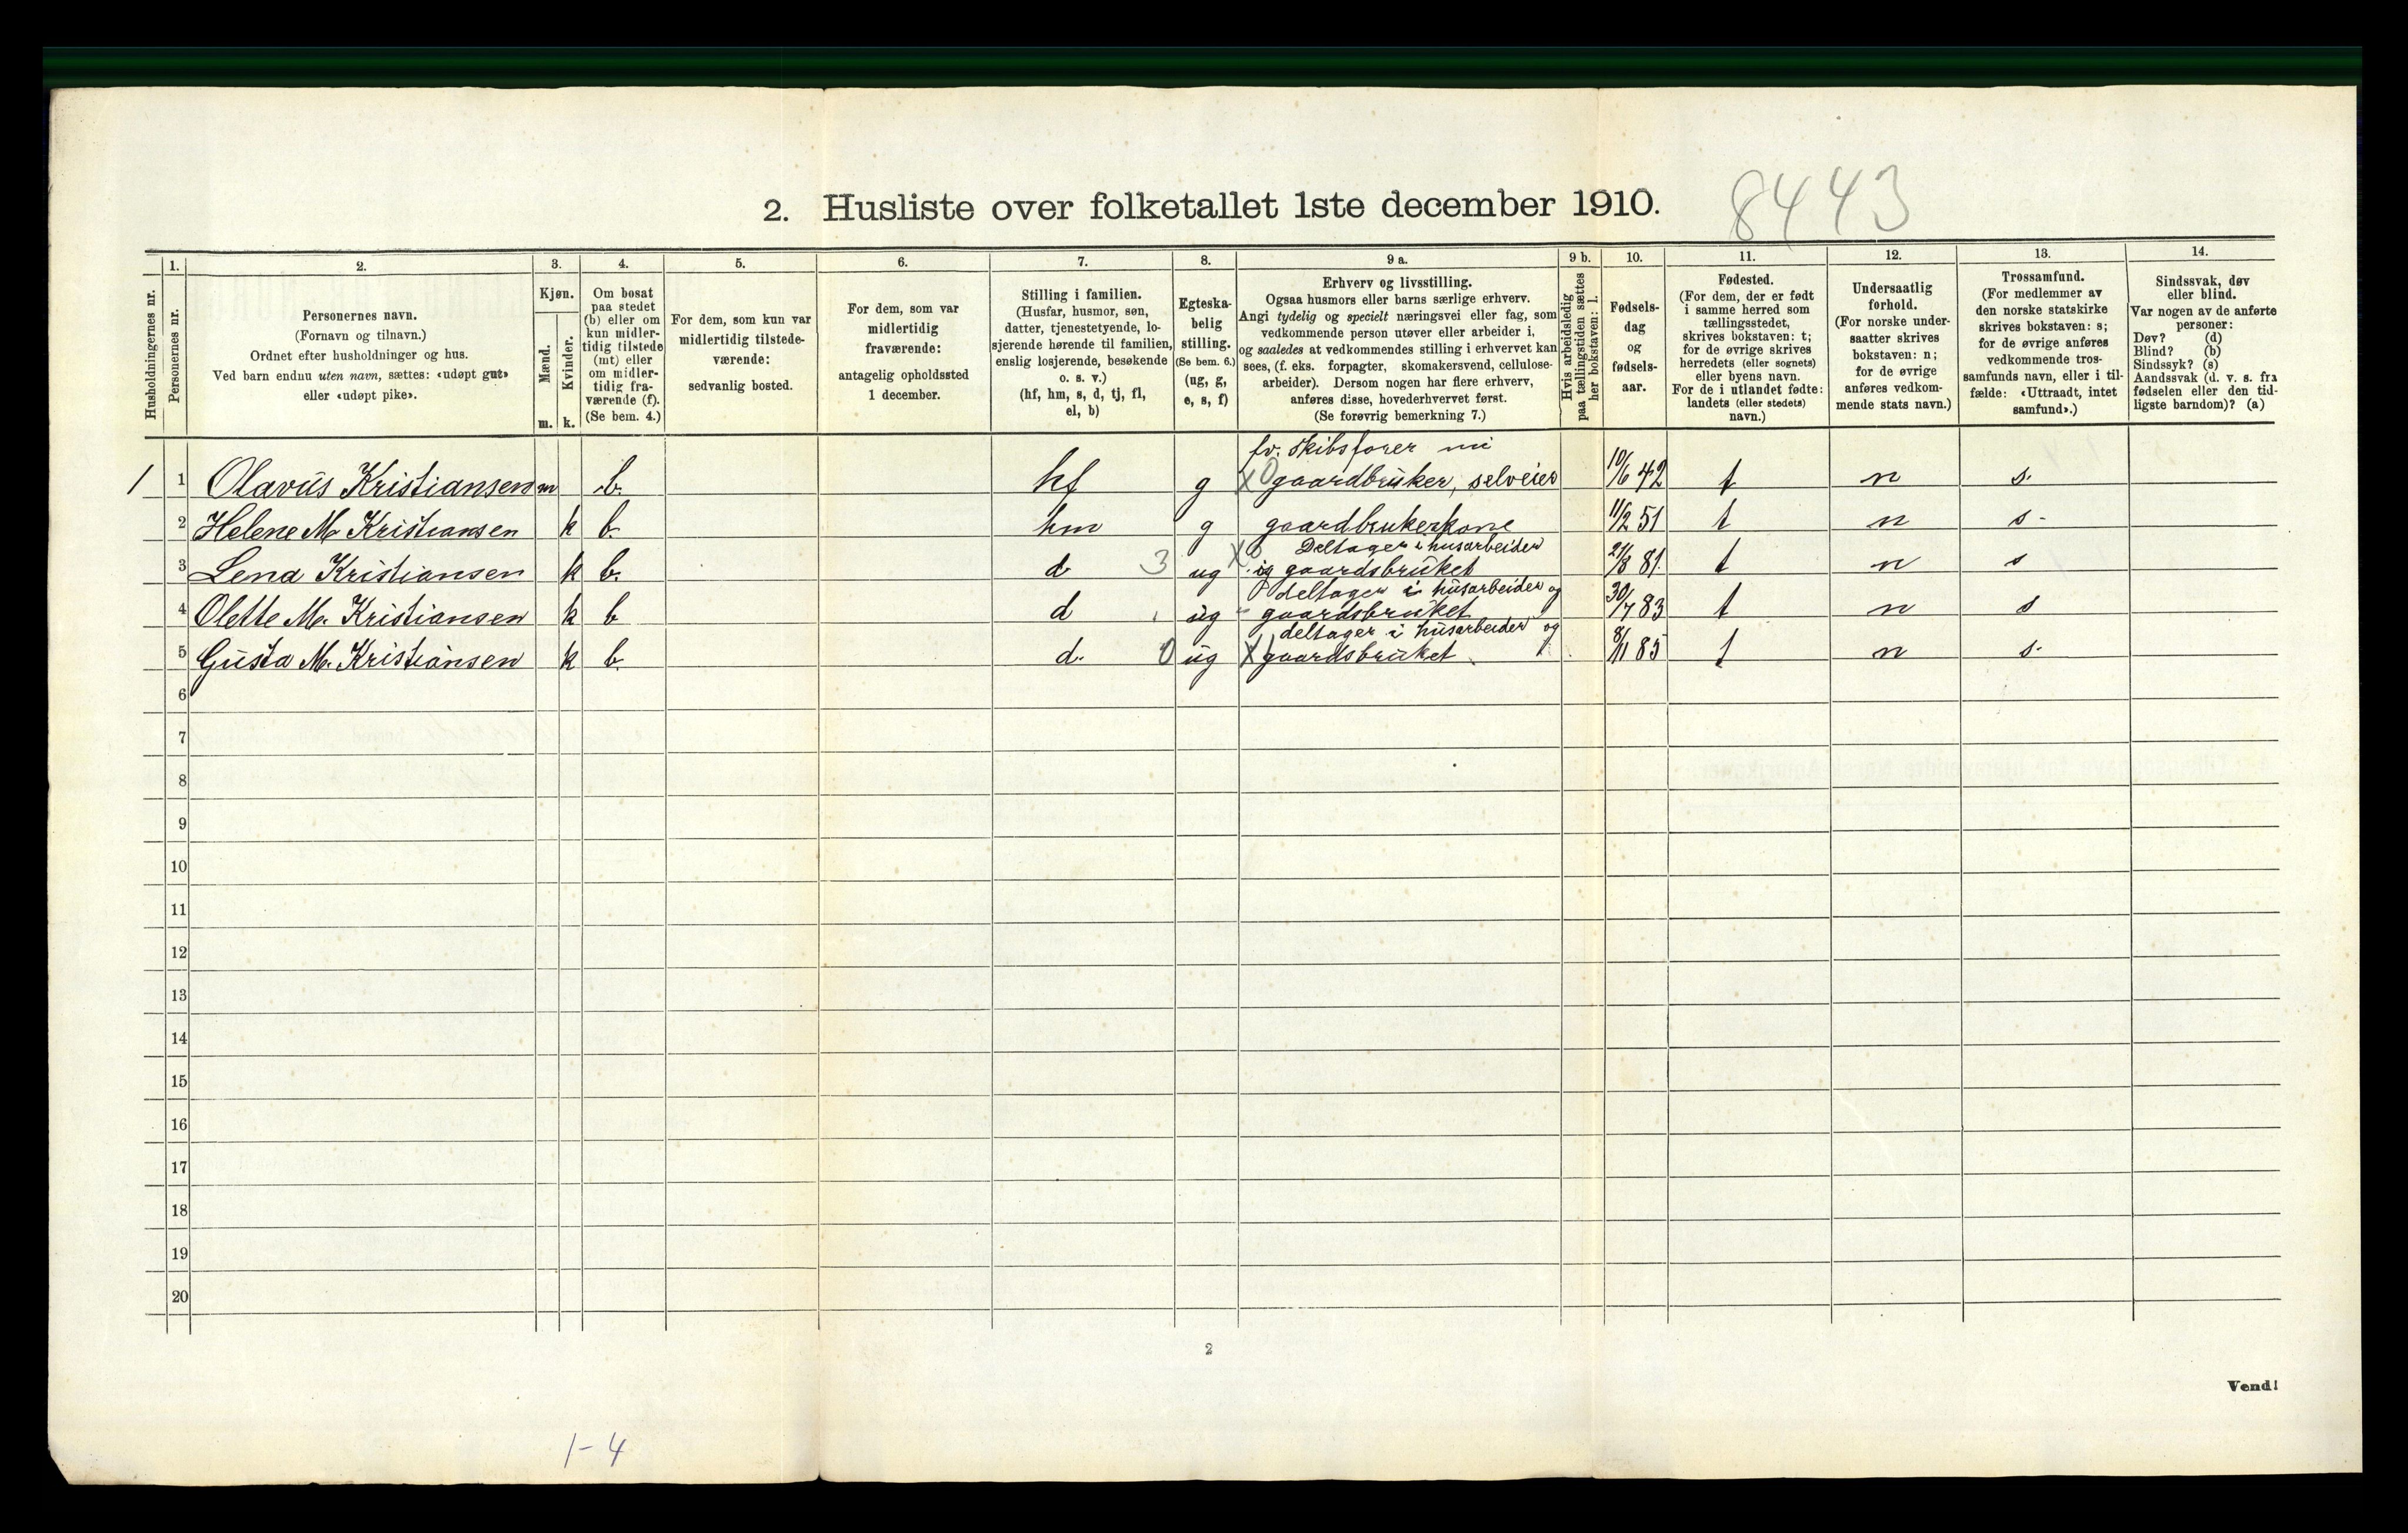 2. Husliste over folketallet 1ste december 1910.
8443
Husholdningernes nr.
1.
Personernes nr.
2.
Personernes navn.
(Fornavn og tilnavn.)
Ordnet efter husholdninger og hus.
Ved barn endnu uten navn, sættes: «udøpt gut»
eller «udøpt pike».
3.
Kjøn.
Mænd.
Kvinder.
m. k.
4.
Om bosat
paa stedet
(b) eller om
kun midler-
tidig tilstede
(mt) eller
om midler-
tidig fra-
værende (f).
(Se bem. 4.)
5.
For dem, som kun var
midlertidig tilstede-
værende:
sedvanlig bosted.
6.
For dem, som var
midlertidig
fraværende:
antagelig opholdssted
1 december.
7.
Stilling i familien.
(Husfar, husmor, søn,
datter, tjenestetyende, lo-
sjerende hørende til familien,
enslig losjerende, besøkende
o. s. v.)
(hf, hm, s, d, tj, fl,
el, b)
8.
Egteska-
belig
stilling.
(Se bem. 6.)
(ug, g,
e, s, f)
9 a.
Erhverv og livsstilling.
Ogsaa husmors eller barns særlige erhverv.
Angi tydelig og specielt næringsvei eller fag, som
vedkommende person utøver eller arbeider i,
og saaledes at vedkommendes stilling i erhvervet kan
sees, (f. eks. forpagter, skomakersvend, cellulose-
arbeider). Dersom nogen har flere erhverv,
anføres disse, hovederhvervet først.
(Se forøvrig bemerkning 7.)
9 b.
Hvis arbeidsledig
paa tællingstiden sættes
her bokstaven: l.
10.
Fødsels-
dag
og
fødsels-
aar.
11.
Fødested.
(For dem, der er født
i samme herred som
tællingsstedet,
skrives bokstaven: t;
for de øvrige skrives
herredets (eller sognets)
eller byens navn.
For de i utlandet fødte:
landets (eller stedets)
navn.)
12.
Undersaatlig
forhold.
(For norske under-
saatter skrives
bokstaven: n;
for de øvrige
anføres vedkom-
mende stats navn.)
13.
Trossamfund.
(For medlemmer av
den norske statskirke
skrives bokstaven: s;
for de øvrige anføres
vedkommende tros-
samfunds navn, eller i til-
fælde: «Uttraadt, intet
samfund».)
14.
Sindssvak, døv
eller blind.
Var nogen av de anførte
personer:
Døv? (d)
Blind? (b)
Sindssyk? (s)
Aandssvak (d. v. s. fra
fødselen eller den tid-
ligste barndom)? (a)
fv. skibsfører nu
1 1 Olavus Kristiansen m b. hf g X0 gaardbruker, selveier 10/6 42 t n s.
2 Helene M. Kristiansen k b. hm g gaardbrukerkone 11/2 51 t n s.
Deltager i husarbeider
3 Lena Kristiansen k b. d 3 ug X og gaardsbruket 21/8 81. t n s
deltager i husarbeider og
4 Olette M. Kristiansen k b d ug " gaardsbruket 30/7 83 t n s
deltager i husarbeider og
5 Gusta M. Kristiansen k b. d. 0 ug X gaardsbruket. 8/11 85 t n s.
6
7
8
9
10
11
12
13
14
15
16
17
18
19
20
2
Vend!
1-4